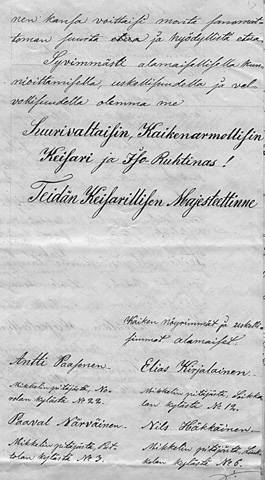 nen kansa voittaisi monta sanomatto-
toman suurta etua ja hyödyllistä etua.
Syvimmästi alamaisellisella kun-
nioittamisella, uskollisuudella ja val-
vollisuudella olemma me
Suurivaltaisin, Kaikenarmollisin
Keisari ja Iso-Ruhtinas!
Teidän Keisarillisen Majesteettinne
Kaiken nöyrimmät ja uskol-
lisimmat alamaiset.
Antti Paasonen.
Mikkelin pitäjästä, No-
rolan kylästä № 22.
Paaval Närväinen.
Mikkelin pitäjästä,
tolan kylästä № 3.
Elias Kirjalainen.
Mikkelin pitäjästä, Liukko-
lan kylästä № 12.
Nils Häkkäinen.
Mikkelin pitäjästä, Liuk-
kolan kylästä № 6.